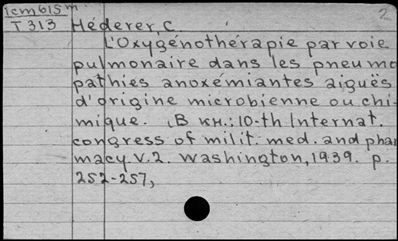 icmb15m. 2
T313 Héderer, C
L'Oxygénothérapie par voie
pulmonaire dans les pneumo
pathies anoxémiantes aiguës
d'origine microbienne ou chi-
mique. (В кн.: 10-th Internat.
congress of milit. med. and phar
macy. V.2. Washington, 1939. p.
252-257,